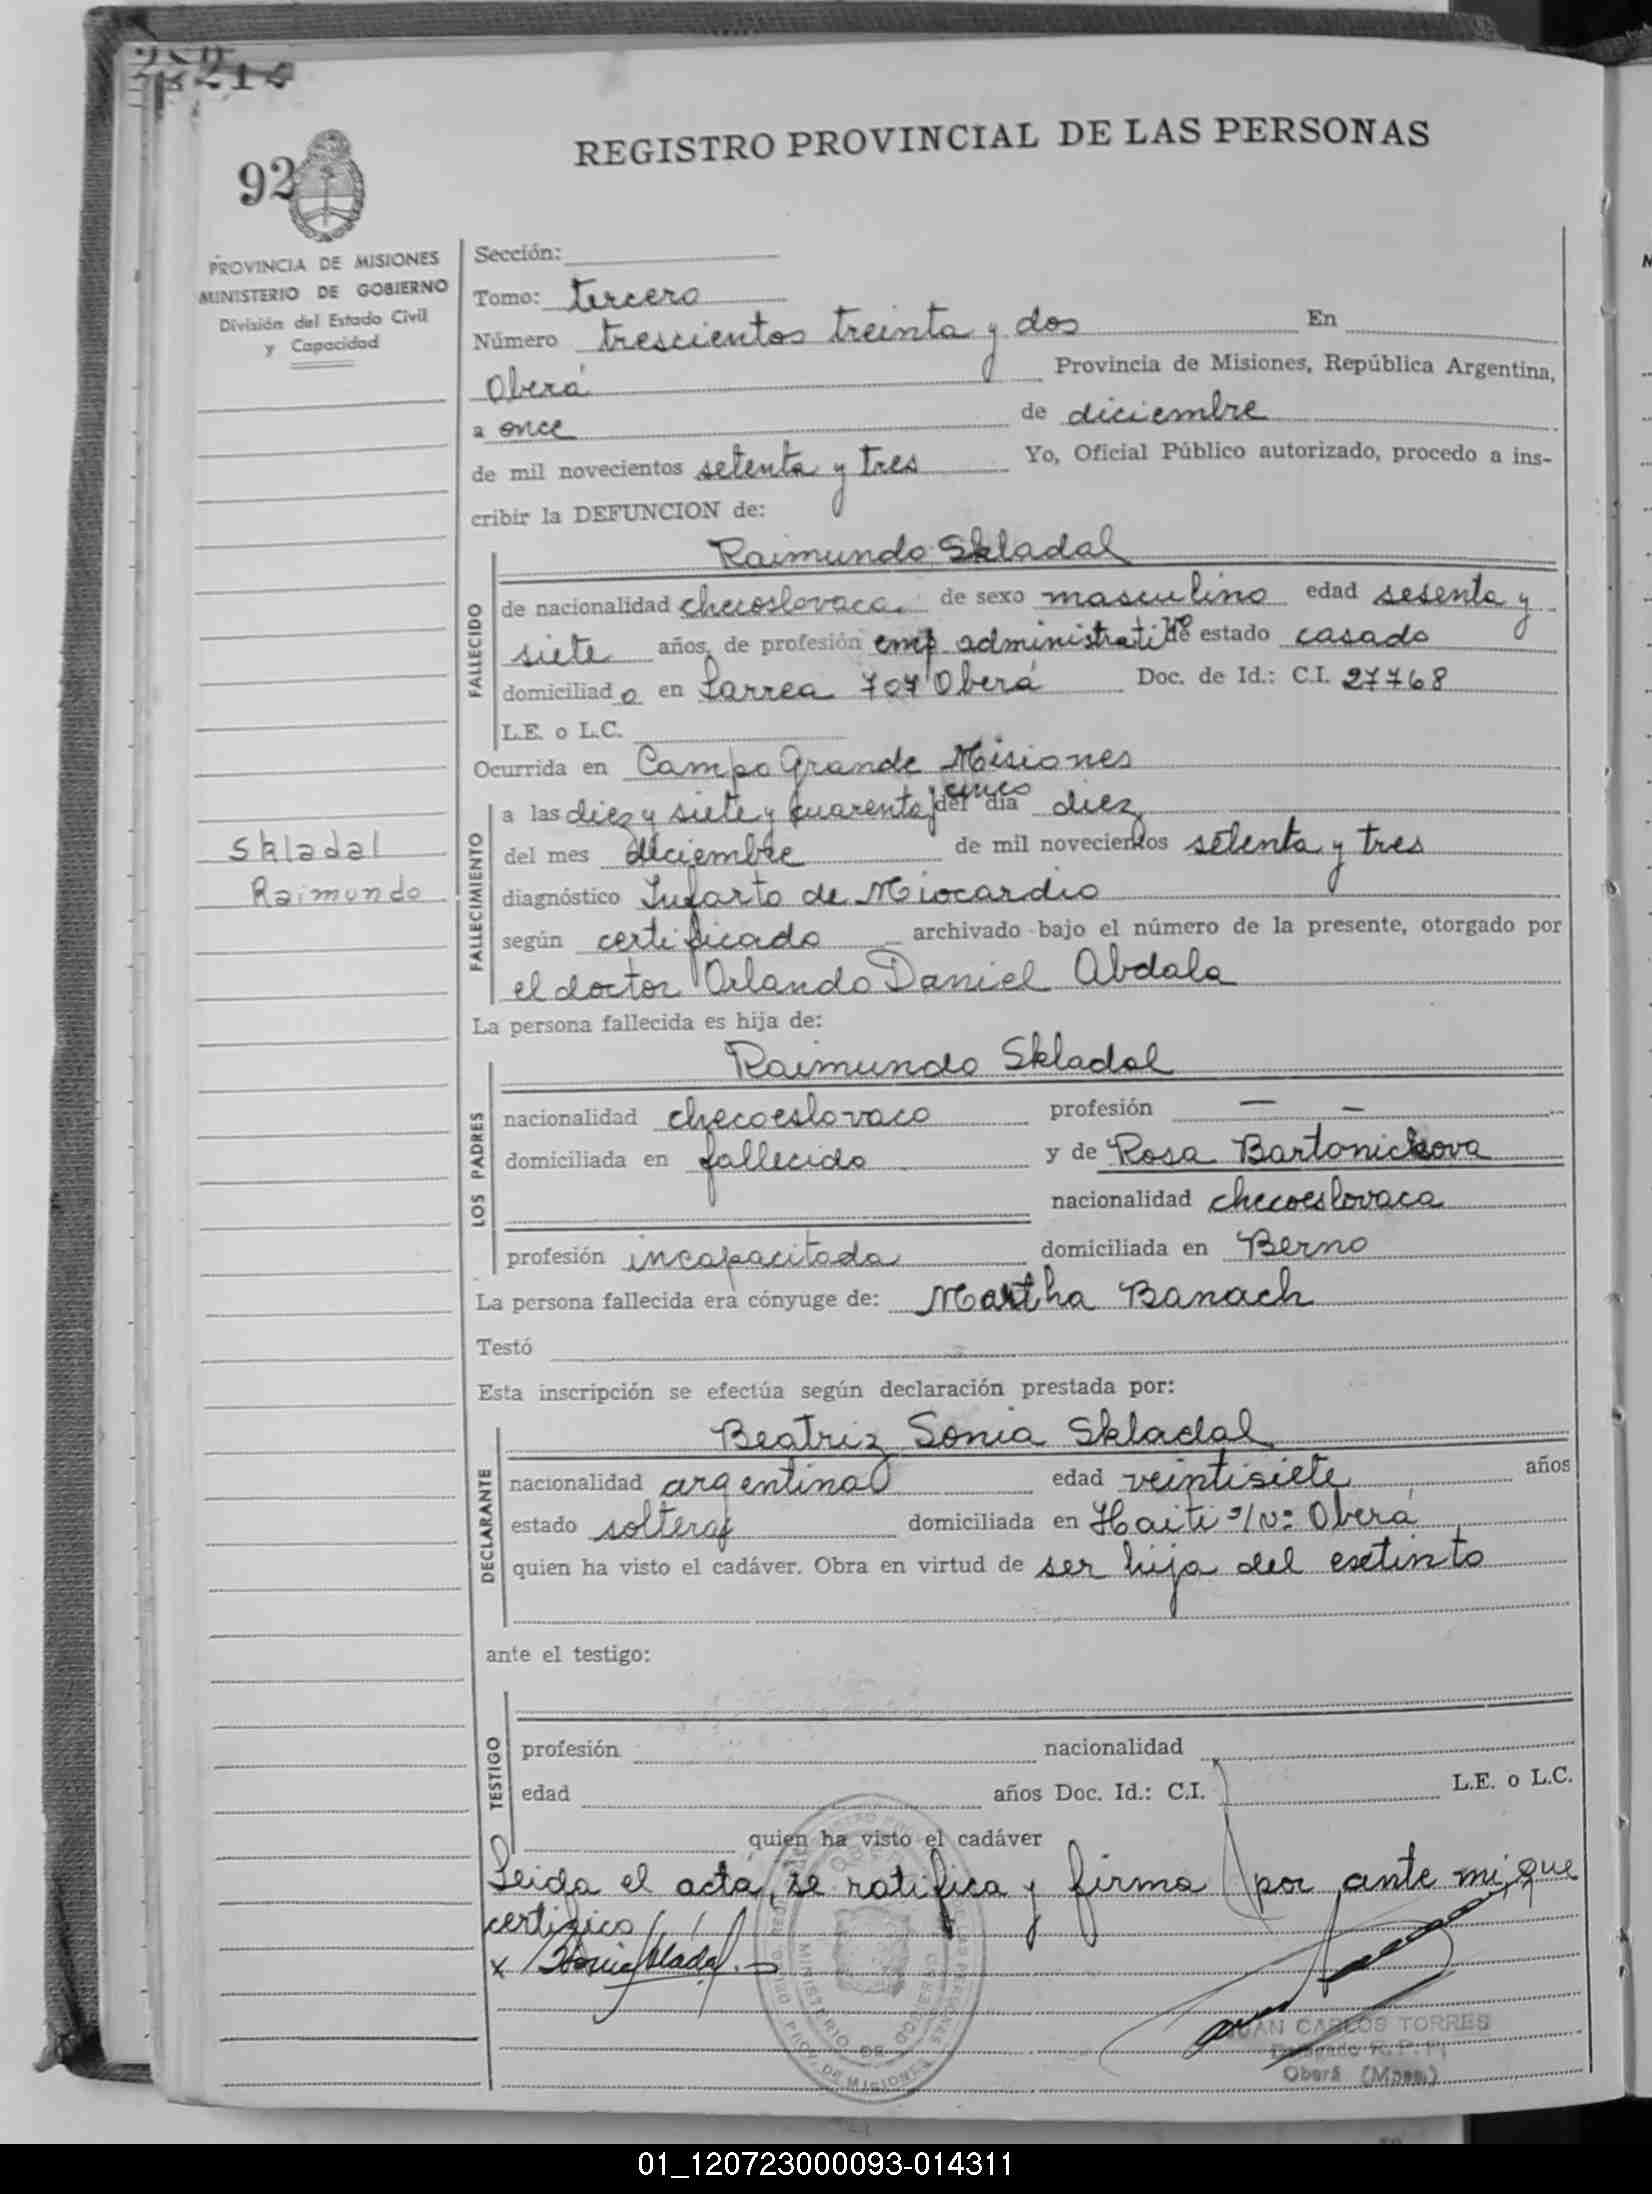 92
REGISTRO PROVINCIAL DE LAS PERSONAS
PROVINCIA DE MISIONES
MINISTERIO DE GOBIERNO
División del Estado Civil
y Capacidad
Skladal
Raimundo
Sección:
Tomo: tercero
Número trescientos treinta y dos En
Oberá Provincia de Misiones, República Argentina,
a once de diciembre
de mil novecientos setenta y tres Yo, Oficial Público autorizado, procedo a ins-
cribir la DEFUNCION de:
FALLECIDO
Raimundo Skladal
de nacionalidad checoslovaca. de sexo masculino edad sesenta y
siete años, de profesión emp administrativo de estado casado
domiciliado en Larrea 707 Oberá Doc. de Id.: C.I. 27768
L.E. o L.C.
Ocurrida en Campo Grande Misiones
FALLECIMIENTO
a las diez y siete y cuarenta y cinco del día diez
del mes diciembre de mil novecientos setenta y tres
diagnóstico Infarto de Miocardio
según certificado archivado bajo el número de la presente, otorgado por
el doctor Orlando Daniel Abdala
La persona fallecida es hija de:
LOS PADRES
Raimundo Skladal
nacionalidad checoeslovaco profesión — —
domiciliada en fallecido y de Rosa Bartonickova
nacionalidad checoeslovaca
profesión incapacitada domiciliada en Berno
La persona fallecida era cónyuge de: Martha Banach
Testó
Esta inscripción se efectúa según declaración prestada por:
DECLARANTE
Beatriz Sonia Skladal
nacionalidad argentina edad veintisiete años
estado soltera domiciliada en Haiti s/nº Oberá
quien ha visto el cadáver. Obra en virtud de ser hija del extinto
ante el testigo:
TESTIGO
profesión nacionalidad
edad años Doc. Id.: C.I. L.E. o L.C.
quien ha visto el cadáver
Leida el acta, se ratifica y firma por ante mi, que
certifico
x Sonia Skladal
JUAN CARLOS TORRES
Delegado R.P.P.
Oberá (Mnes)
01_120723000093-014311